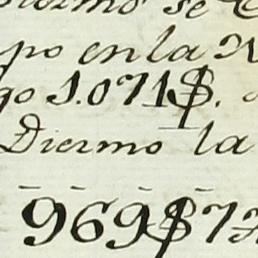 iezmo se
po en la N
go 1.071$.
Diezmo la
969$7